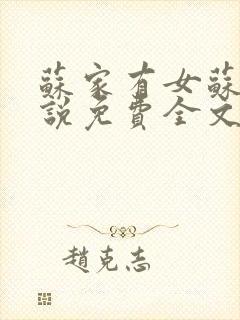 蘇家有女蘇
說免費全文
趙克志